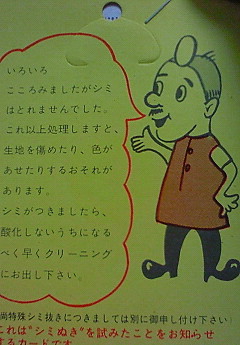 いろいろ
こころみましたがシミ
はとれませんでした。
これ以上処理しますと、
生地を傷めたり、色が
あせたりするおそれが
あります。
シミがつきましたら、
酸化しないうちになる
べく早くクリーニング
にお出し下さい。
尚特殊シミ抜きにつきましては別に御申し付け下さい
これは“シミぬき”を試みたことをお知らせ
するカードです